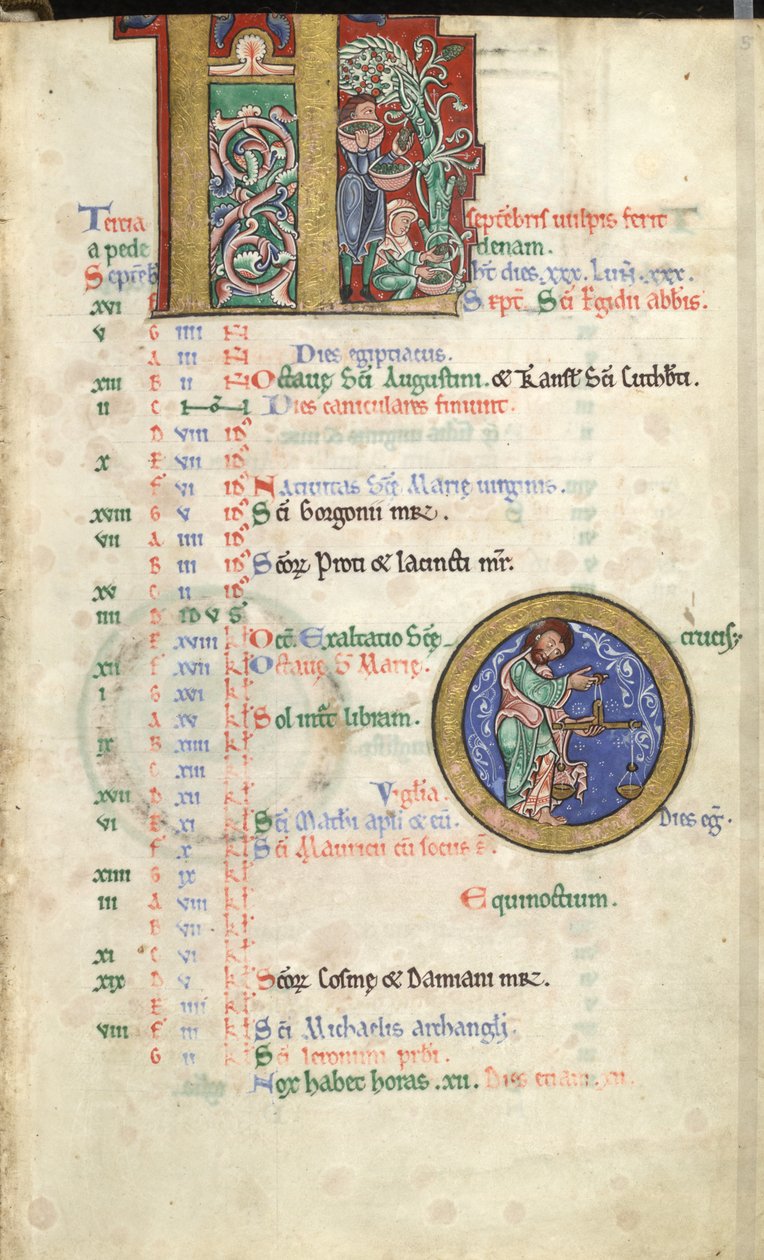 Tercia septẽbris uulpis ferit
a pede denam.
Septẽb hñt dies .xxx. Luñ .xxx.
xvi f S kpt̃. Sc̃i Egidii abbis.
v G iiii N̄
A iii N̄ Dies egiptiacus.
xiii B ii N̄ Octauę Sc̃i Augustini. & Tr̃anst̃ Sc̃i Cuthb̃ti.
ii C Dies caniculares finiunt.
D viii id̕
x E vii id̕
f vi id̕ Natiuitas Sc̃ę Marię uirginis.
xviii G v id̕ Sc̃i Gorgonii mr̃.
vii A iiii id̕
B iii id̕ Sc̃oꝝ Proti & Iacincti mr̃.
xv C ii id̕
iiii D IDVS
E xviii kł Oct̃. Exaltatio Sc̃ę crucis;
xii f xvii kł Octauę S̃ Marię.
i G xvi kł
A xv kł Sol int̃t libram.
ix B xiiii kł
C xiii kł
xvii D xii kł Viglĩa.
vi E xi kł Sc̃i Mathi apłi & eũ. Dies eg̃.
f x kł Sc̃i Mauricii cũ sociis s̃.
xiiii G ix kł
iii A viii kł Equinoctium.
B vii kł
xi C vi kł
xix D v kł Sc̃oꝝ Cosmę & Damiani mr̃.
E iiii kł
viii f iii kł Sc̃i Michaelis archangłi.
G ii kł Sc̃i Ieronimi prb̃i.
Nox habet horas .xii. Dies etiam .xii.